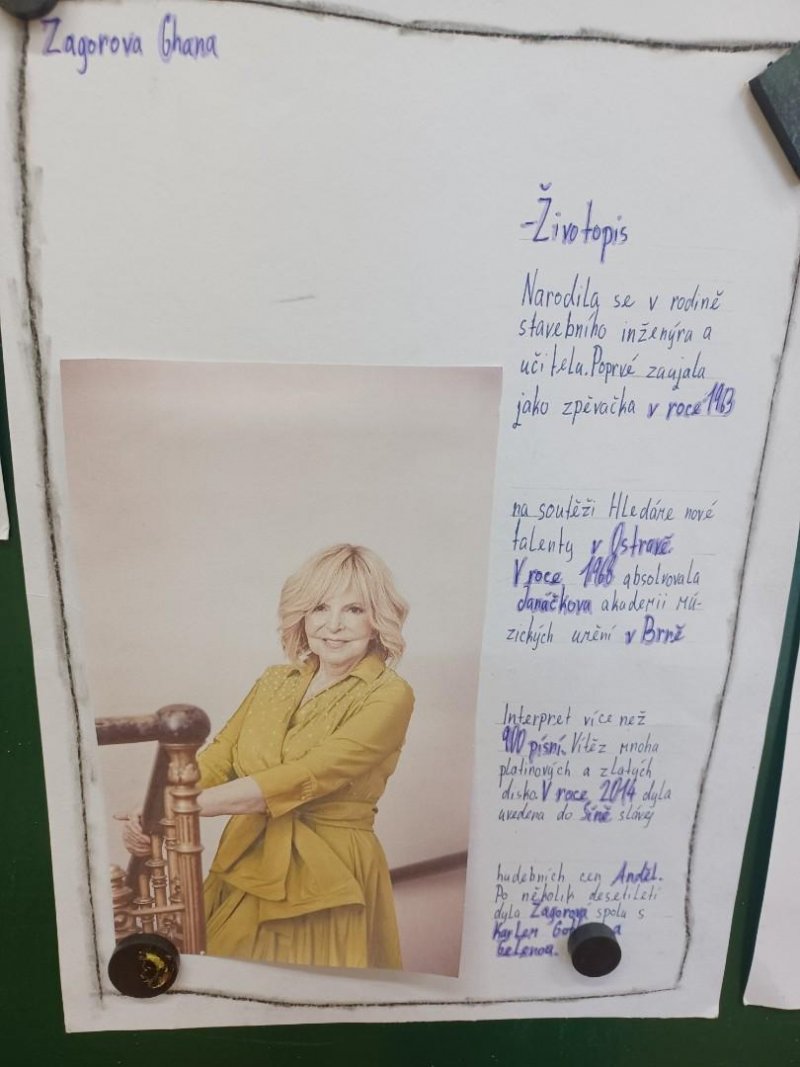 Zagorova Ghana
-Životopis
Narodila se v rodině
stavebního inženýra a
učitela. Poprvé zaujala
jako zpěvačka v roce 1963
na soutěži Hledáme nové
talenty v Ostravě.
V roce 1968 absolvovala
danáčkova akademii mú-
zických umění v Brně
Interpret více než
900 písní. Vítěz mnoha
platinových a zlatých
disko. V roce 2014 dyla
uvedena do Síně slávy
hudebních cen Anděl.
Po několik desetiletí
dyla Zagorová spolu s
Karlem a
Gelenou.